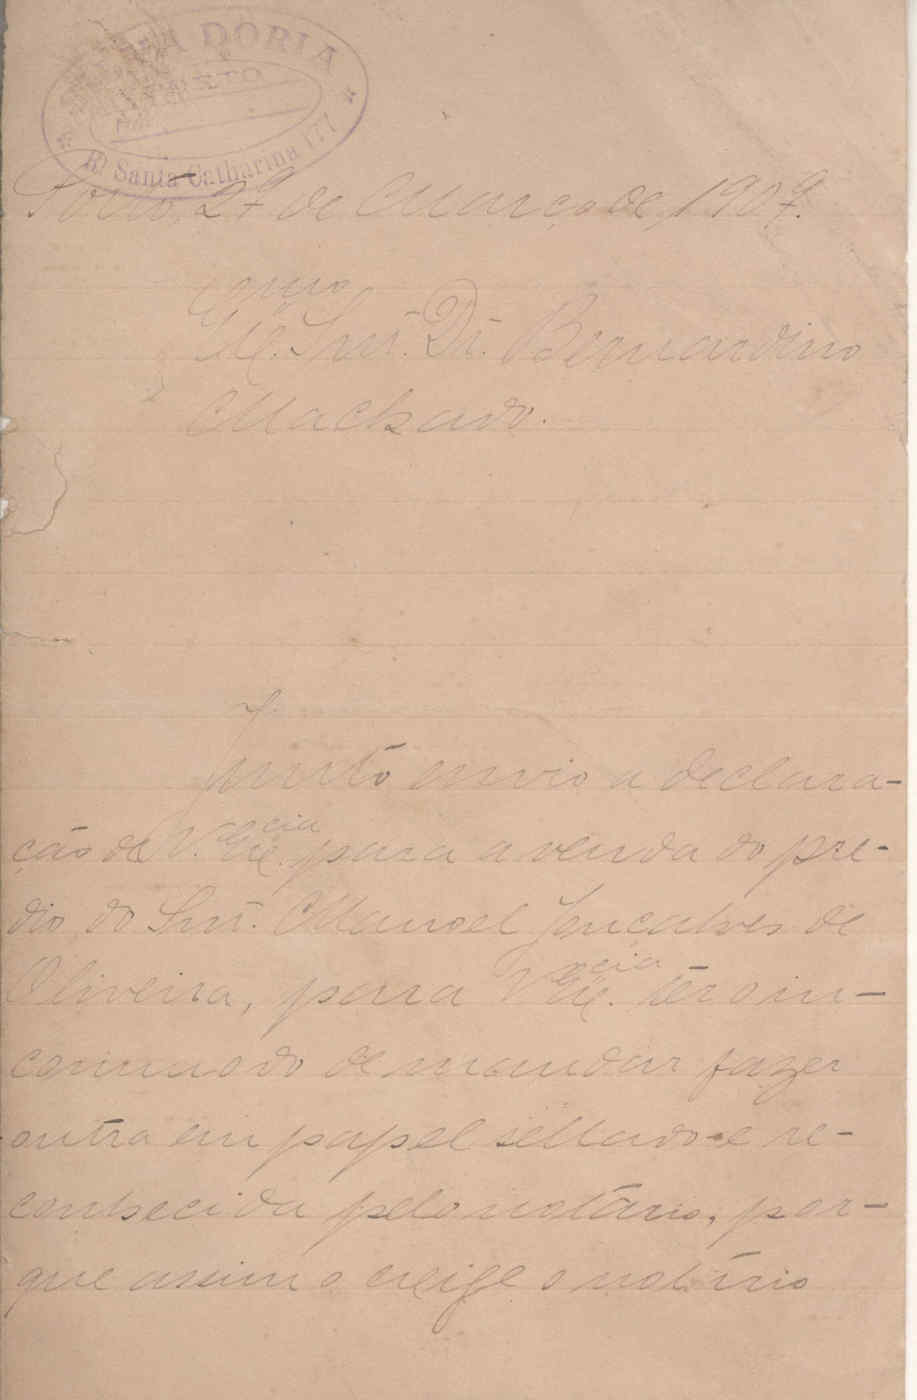 DORIA
R. Santa Catharina 177
Porto, 27 de Março de 1907.
Exmo
Snr. Dr. Bernardino
Machado.
Junto envio a declara-
ção de V. Excia para a venda do pre-
dio do Snr. Manoel Gonçalves de
Oliveira, para V. Excia. têr o in-
commodo de mandar fazer
outra em papel sellado e re-
conhecida pelo notário, por-
que assim o exige o notário